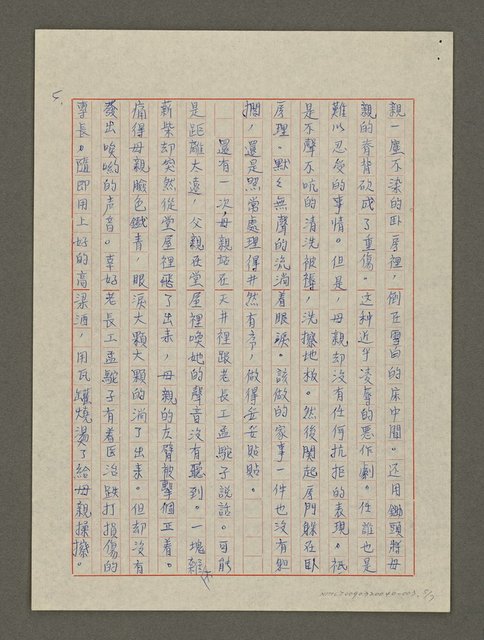 親一塵不染的臥房裡,倒在雪白的床中間。还用鋤頭將母
親的脊背砍成了重傷。这种近乎凌辱的悪作劇。任誰也是
難以忍受的事情。但是,母親却沒有任何抗拒的表現。祇
是不聲不吭的清洗被褥,洗擦地板。然後関起房門躲在臥
房理。默々無聲的流淌着眼淚。該做的家事一件也沒有躭
擱,還是照常處理得井然有序,做得妥妥貼貼。
還有一次,母親站在天井裡跟老長工孟駝子說話。可能
是距離太遠,父親在堂屋裡喚她的聲音沒有聽到。一塊
薪柴却突然從堂屋裡飛了出來,母親的左臂被擊個正着。
痛得母親臉色鐵青,眼淚大顆大顆的淌了出來。但却沒有
發出唉喲的声音。幸好老長工孟駝子有着医治跌打損傷的
專長。隨即用上好的高梁酒,用瓦罐燒燙了給母親揉擦。
5.